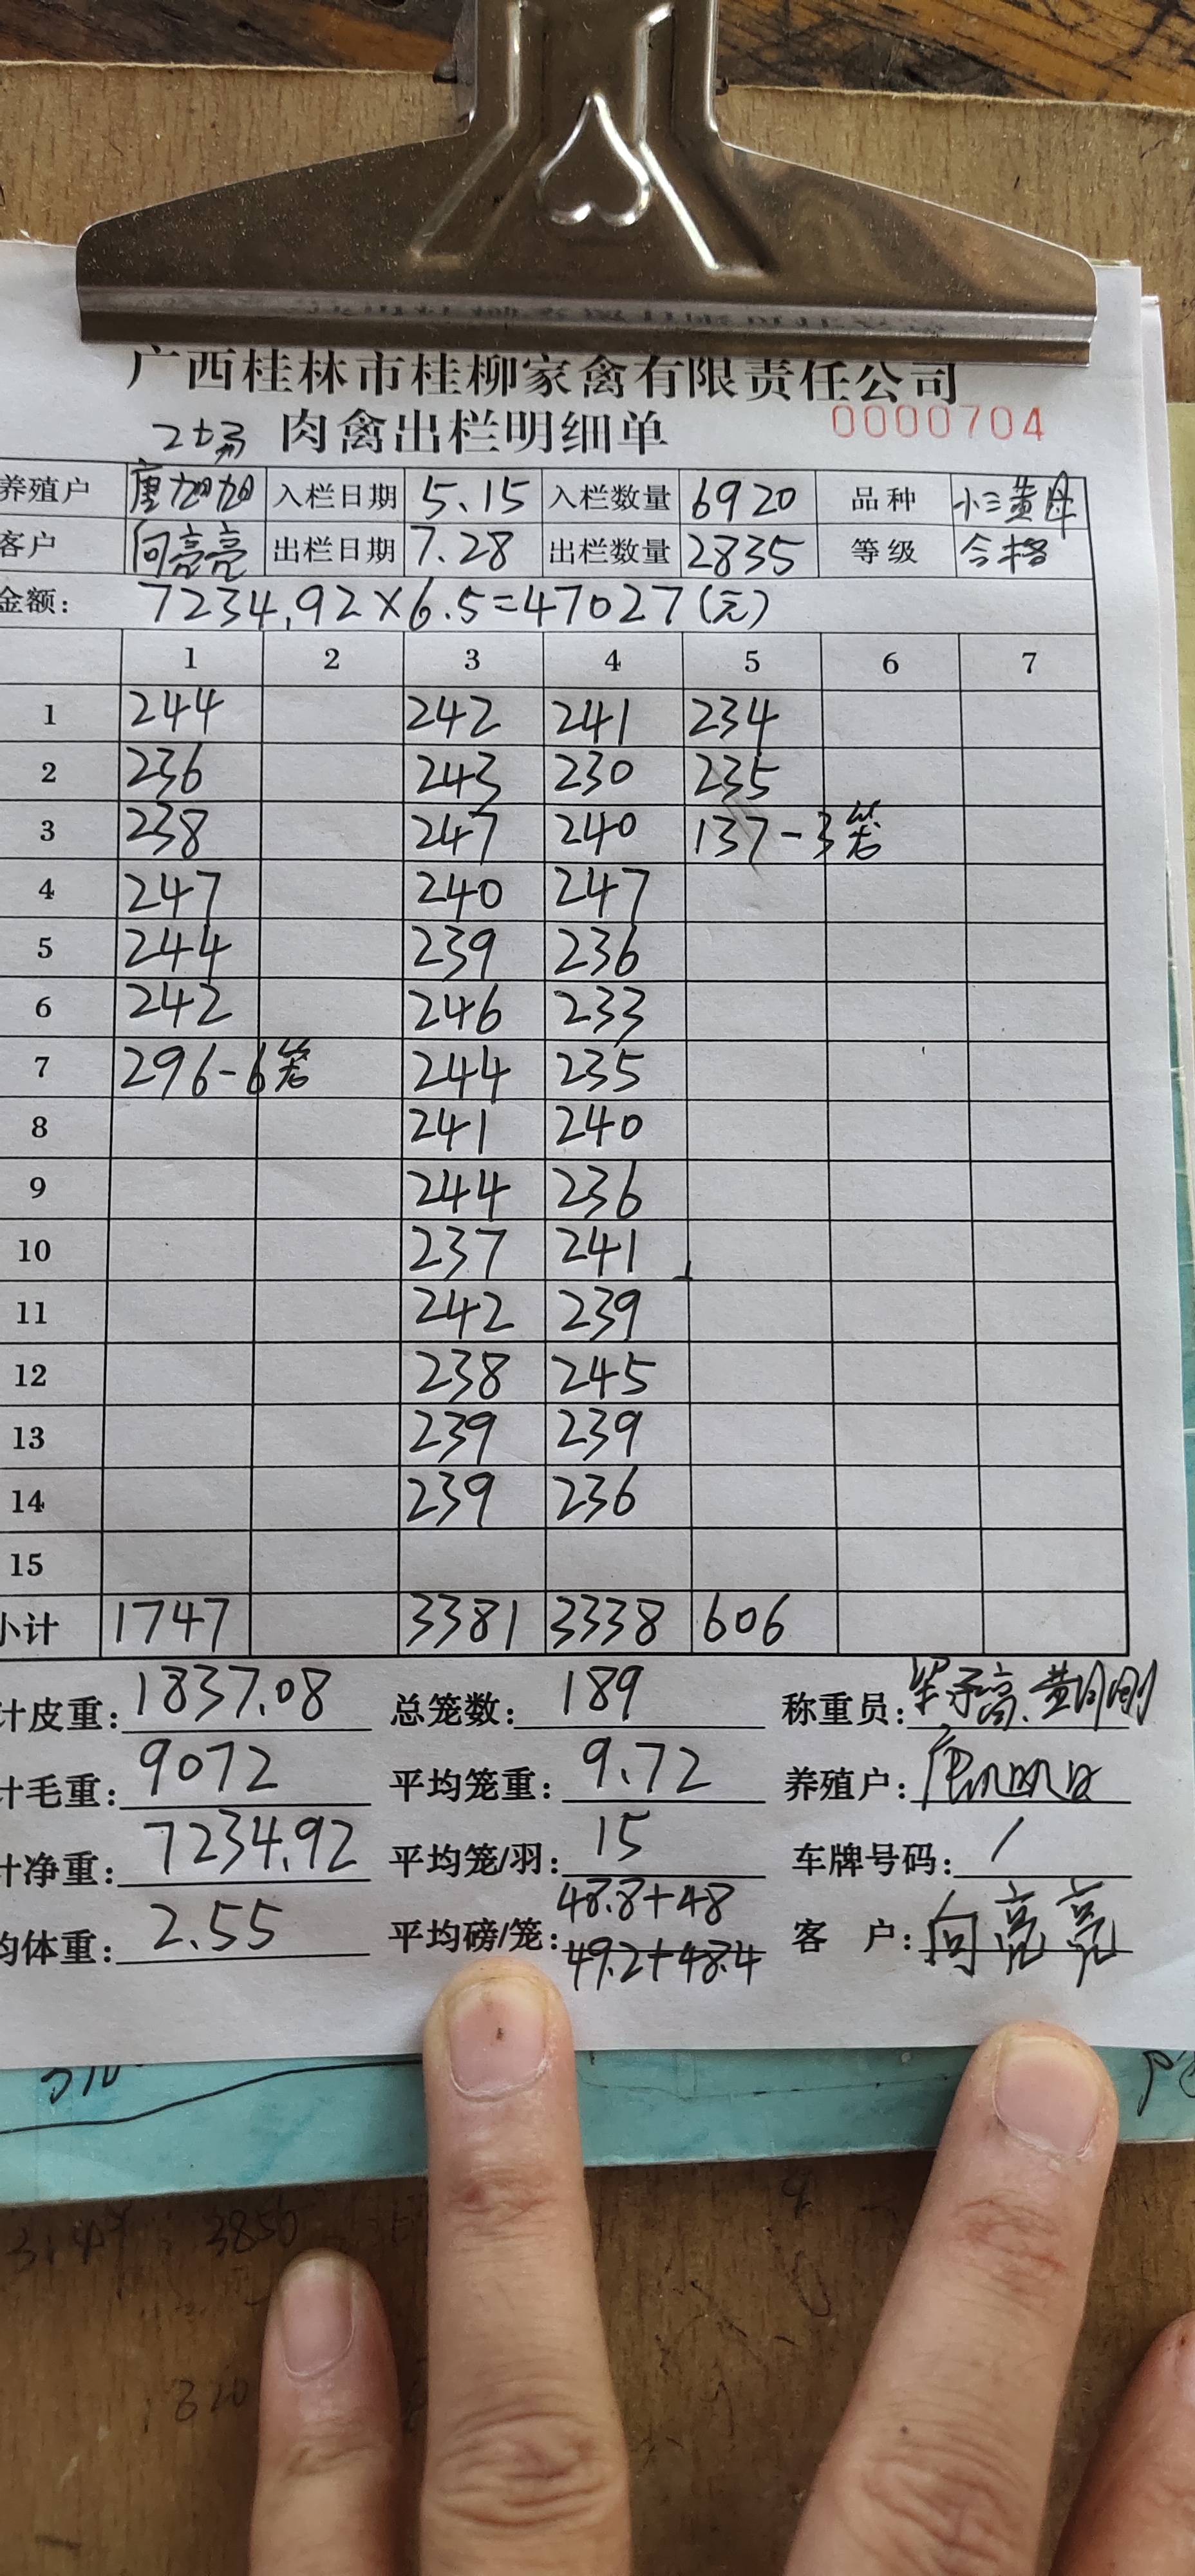 广西桂林市桂柳家禽有限责任公司
2场 肉禽出栏明细单 0000704
养殖户 唐旭旭 入栏日期 5.15 入栏数量 6920 品种 小三黄母
客户 向亮亮 出栏日期 7.28 出栏数量 2835 等级 合格
金额: 7234.92×6.5=47027(元)
1 2 3 4 5 6 7
1 244 242 241 234
2 236 243 230 235
3 238 247 240 137-3笼
4 247 240 247
5 244 239 236
6 242 246 233
7 296-6笼 244 235
8 241 240
9 244 236
10 237 241
11 242 239
12 238 245
13 239 239
14 239 236
15
小计 1747 3381 3338 606
计皮重: 1837.08 总笼数: 189 称重员:
计毛重: 9072 平均笼重: 9.72 养殖户:
计净重: 7234.92 平均笼/羽: 15 车牌号码: /
均体重: 2.55 平均磅/笼: 48.8+48 客 户: 向亮亮
49.2+48.4